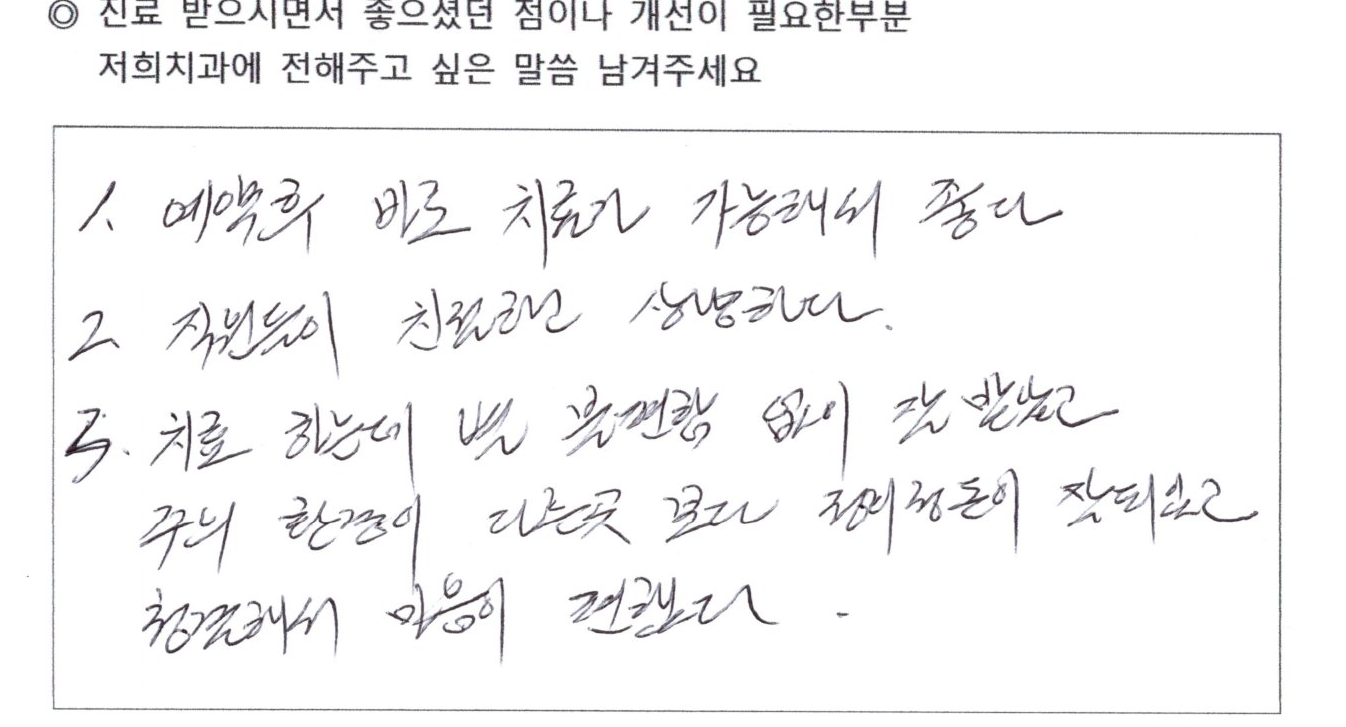 ◎ 진료 받으시면서 좋으셨던 점이나 개선이 필요한부분
저희치과에 전해주고 싶은 말씀 남겨주세요
1. 예약후 바로 치료가 가능해서 좋다
2. 직원들이 친절하고 상냥하다.
3. 치료 하는데 별 불편함 없이 잘 받았고
주위 환경이 다른곳 보다 정리정돈이 잘되있고
청결해서 마음이 편했다.